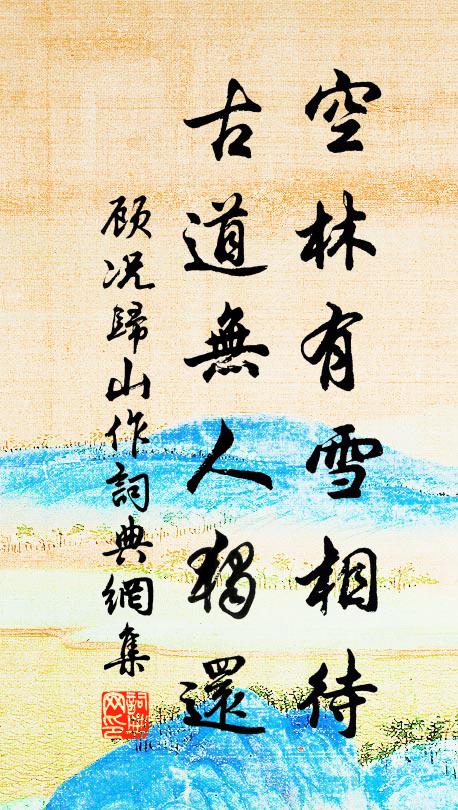 空林有雪相待
古道無人獨還
顾况歸山作詞典網集